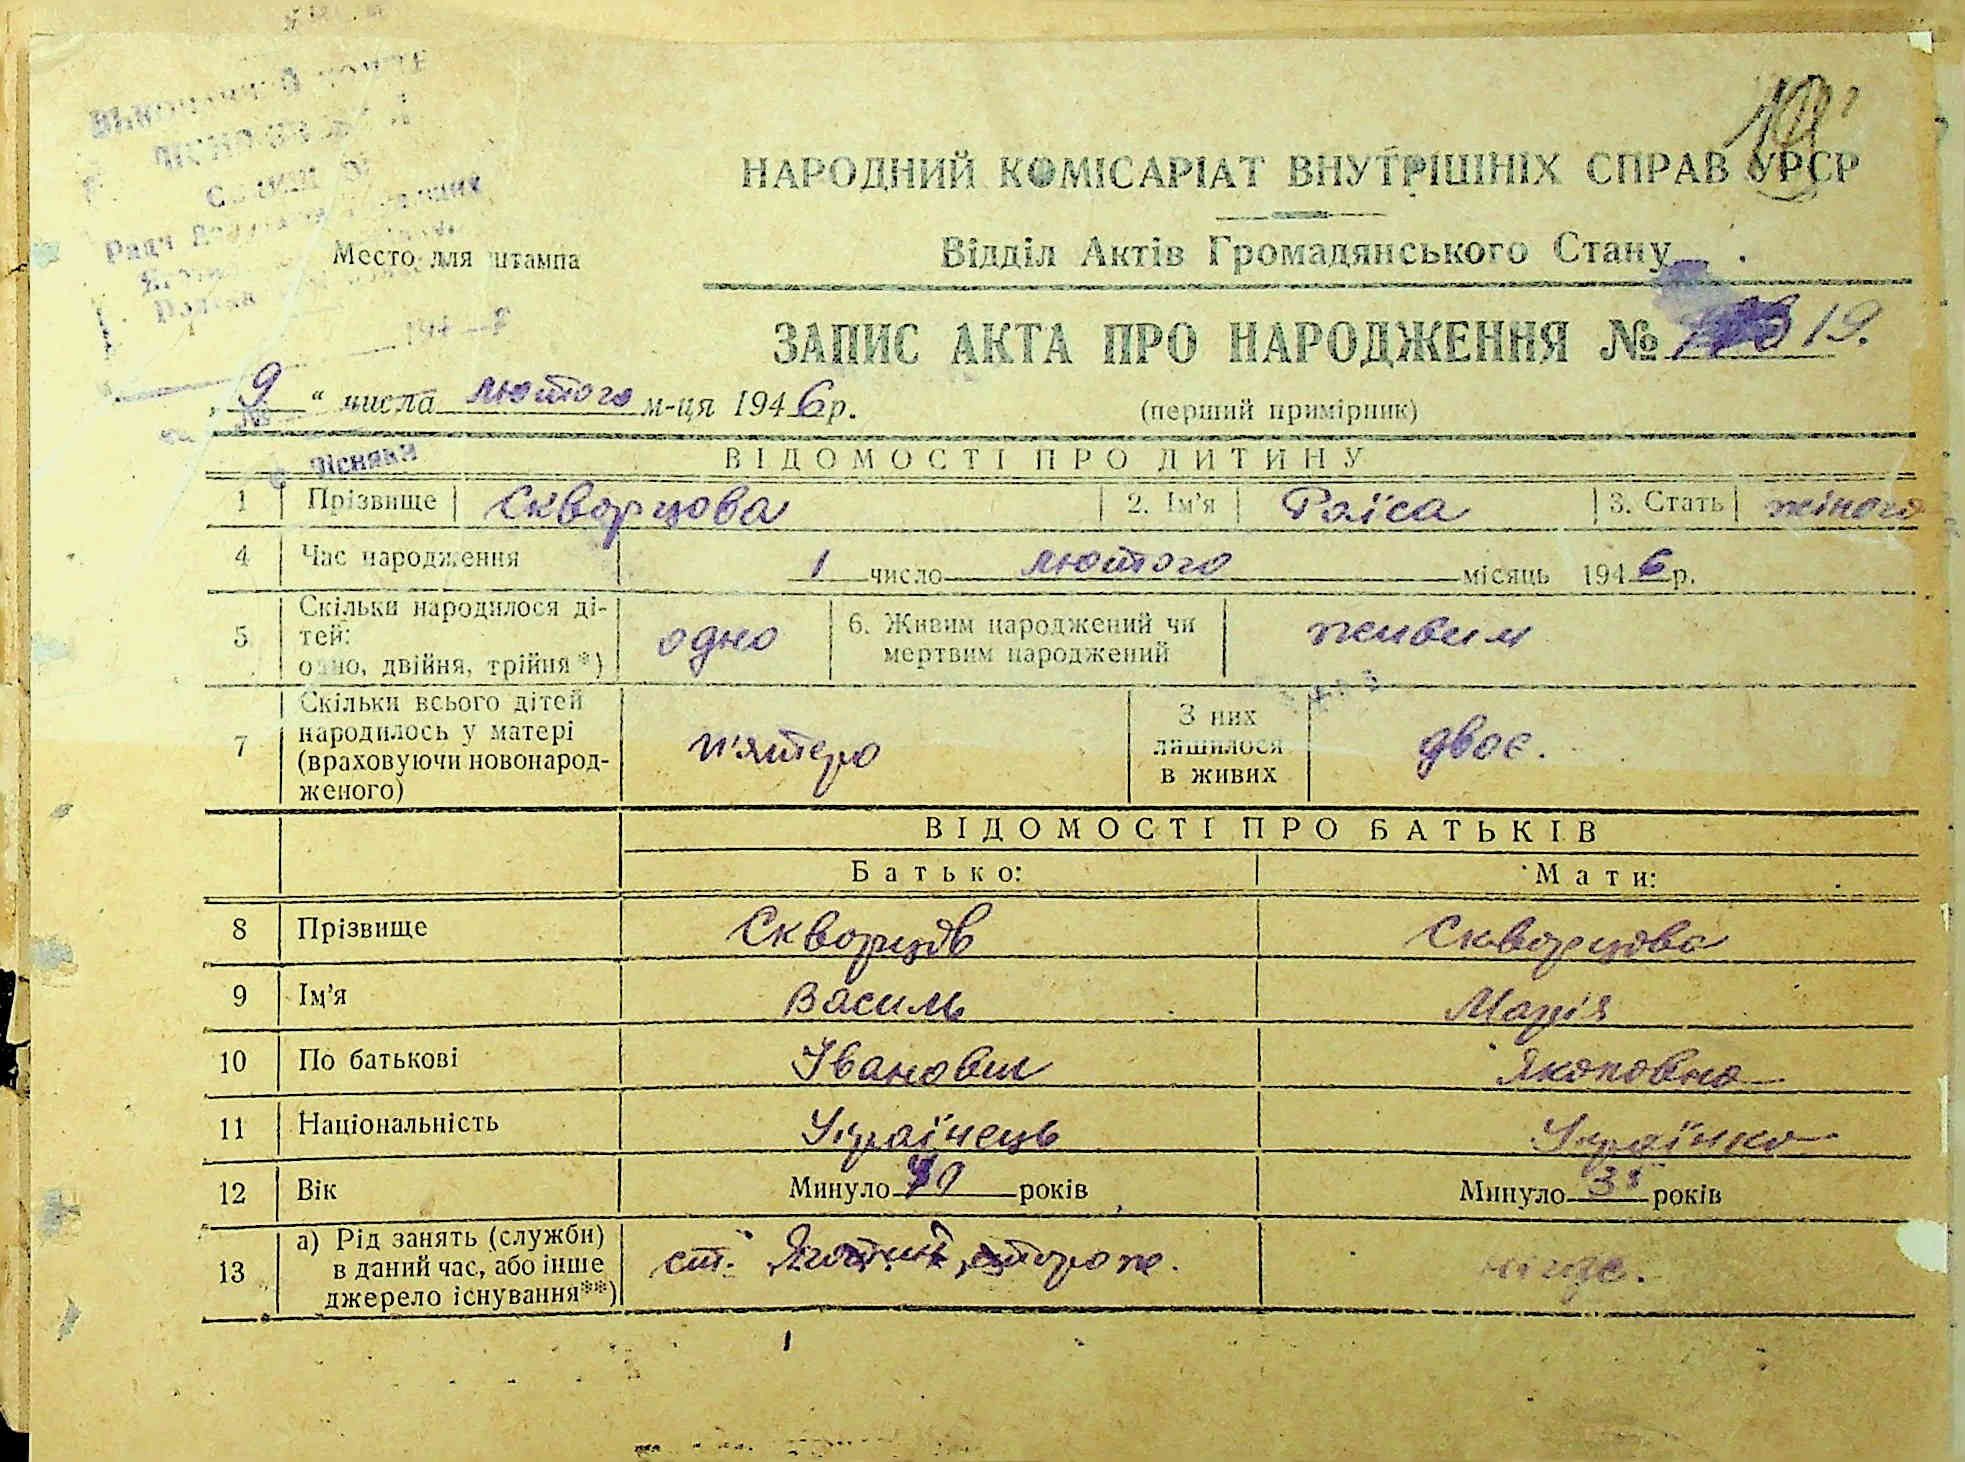 НАРОДНИЙ КОМІСАРІАТ ВНУТРІШНІХ СПРАВ УРСР
Место для штампа
Відділ Актів Громадянського Стану
ЗАПИС АКТА ПРО НАРОДЖЕННЯ № 19.
„ 9 “ числа лютого м-ця 1946 р.
(перший примірник)
с. Лісняки
ВІДОМОСТІ ПРО ДИТИНУ
1 Прізвище Скворцова 2. Ім'я Раїса 3. Стать жіноча
4 Час народження 1 число лютого місяць 1946 р.
5 Скільки народилося ді-
тей:
одно, двійня, трійня *) одно 6. Живим народжений чи
мертвим народжений живим
7 Скільки всього дітей
народилось у матері
(враховуючи новонарод-
женого) п'ятеро З них
лишилося
в живих двоє.
ВІДОМОСТІ ПРО БАТЬКІВ
Батько: Мати:
8 Прізвище Скворцов Скворцова
9 Ім'я Василь Марія
10 По батькові Іванович Якоповна
11 Національність Українець Українка
12 Вік Минуло 40 років Минуло років
13 а) Рід занять (служби)
в даний час, або інше
джерело існування**) ст. Яготин, сторож. нігде.